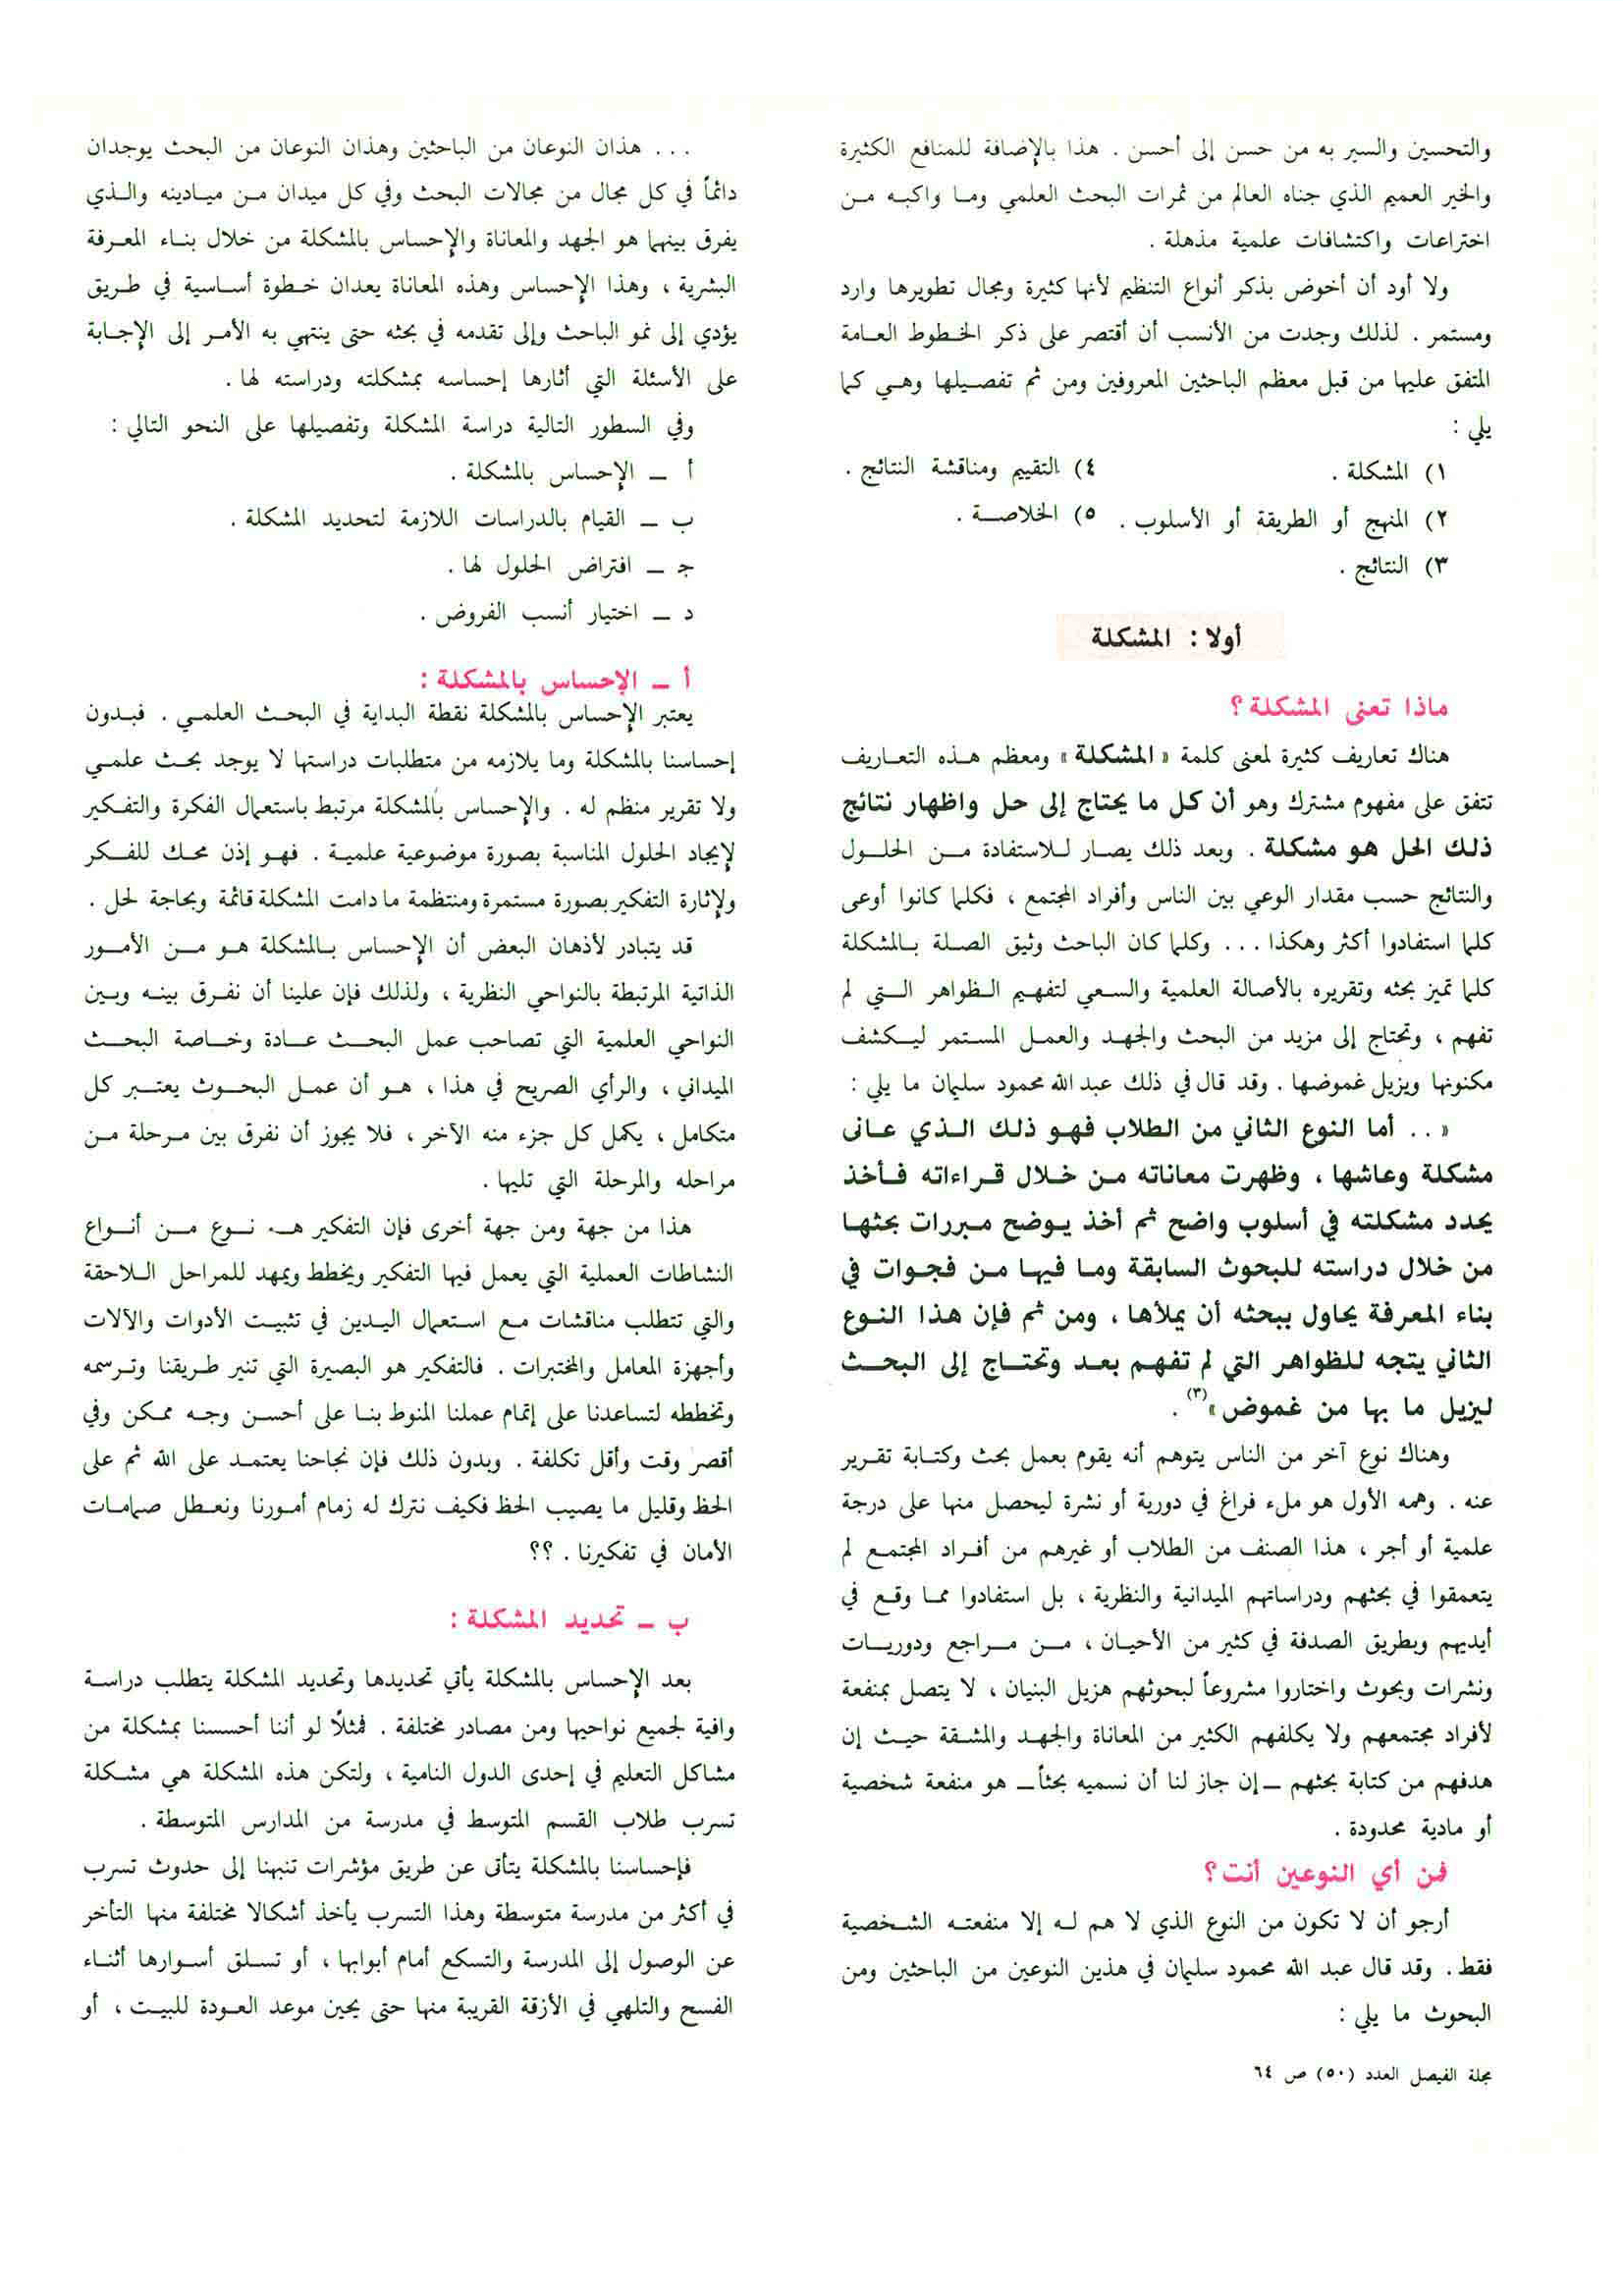 والتحسين والسير به من حسن إلى أحسن . هذا بالإضافة للمنافع الكثيرة
والخير العميم الذي جناه العالم من ثمرات البحث العلمي وما واكبه من
اختراعات واكتشافات علمية مذهلة .
ولا أود أن أخوض بذكر أنواع التنظيم لأنها كثيرة ومجال تطويرها وارد
ومستمر . لذلك وجدت من الأنسب أن أقتصر على ذكر الخطوط العامة
المتفق عليها من قبل معظم الباحثين المعروفين ومن ثم تفصيلها وهي كما
يلي :
١) المشكلة .
٢) المنهج أو الطريقة أو الأسلوب .
٣) النتائج .
٤) التقييم ومناقشة النتائج .
٥) الخلاصة .
أولا : المشكلة
ماذا تعنى المشكلة ؟
هناك تعاريف كثيرة لمعنى كلمة « المشكلة » ومعظم هذه التعاريف
تتفق على مفهوم مشترك وهو أن كل ما يحتاج إلى حل واظهار نتائج
ذلك الحل هو مشكلة . وبعد ذلك يصار للاستفادة من الحلول
والنتائج حسب مقدار الوعي بين الناس وأفراد المجتمع ، فكلما كانوا أوعى
كلما استفادوا أكثر وهكذا ... وكلما كان الباحث وثيق الصلة بالمشكلة
كلما تميز بحثه وتقريره بالأصالة العلمية والسعي لتفهيم الظواهر التي لم
تفهم ، وتحتاج إلى مزيد من البحث والجهد والعمل المستمر ليكشف
مكنونها ويزيل غموضها . وقد قال في ذلك عبد الله محمود سليمان ما يلي :
« .. أما النوع الثاني من الطلاب فهو ذلك الذي عانى
مشكلة وعاشها ، وظهرت معاناته من خلال قراءاته فأخذ
يحدد مشكلته في أسلوب واضح ثم أخذ يوضح مبررات بحثها
من خلال دراسته للبحوث السابقة وما فيها من فجوات في
بناء المعرفة يحاول ببحثه أن يملأها ، ومن ثم فإن هذا النوع
الثاني يتجه للظواهر التي لم تفهم بعد وتحتاج إلى البحث
ليزيل ما بها من غموض » (٣) .
وهناك نوع آخر من الناس يتوهم أنه يقوم بعمل بحث وكتابة تقرير
عنه . وهمه الأول هو ملء فراغ في دورية أو نشرة ليحصل منها على درجة
علمية أو أجر ، هذا الصنف من الطلاب أو غيرهم من أفراد المجتمع لم
يتعمقوا في بحثهم ودراساتهم الميدانية والنظرية ، بل استفادوا مما وقع في
أيديهم وبطريق الصدفة في كثير من الأحيان ، من مراجع ودوريات
ونشرات وبحوث واختاروا مشروعاً لبحوثهم هزيل البنيان ، لا يتصل بمنفعة
لأفراد مجتمعهم ولا يكلفهم الكثير من المعاناة والجهد والمشقة حيث إن
هدفهم من كتابة بحثهم ــ إن جاز لنا أن نسميه بحثاً ــ هو منفعة شخصية
أو مادية محدودة .
فمن أي النوعين أنت ؟
أرجو أن لا تكون من النوع الذي لا هم له إلا منفعته الشخصية
فقط . وقد قال عبد الله محمود سليمان في هذين النوعين من الباحثين ومن
البحوث ما يلي :
... هذان النوعان من الباحثين وهذان النوعان من البحث يوجدان
دائماً في كل مجال من مجالات البحث وفي كل ميدان من ميادينه والذي
يفرق بينهما هو الجهد والمعاناة والإحساس بالمشكلة من خلال بناء المعرفة
البشرية ، وهذا الإحساس وهذه المعاناة يعدان خطوة أساسية في طريق
يؤدي إلى نمو الباحث وإلى تقدمه في بحثه حتى ينتهي به الأمر إلى الإجابة
على الأسئلة التي أثارها إحساسه بمشكلته ودراسته لها .
وفي السطور التالية دراسة المشكلة وتفصيلها على النحو التالي :
أ ــ الإحساس بالمشكلة .
ب ــ القيام بالدراسات اللازمة لتحديد المشكلة .
جـ ــ افتراض الحلول لها .
د ــ اختيار أنسب الفروض .
أ ــ الإحساس بالمشكلة :
يعتبر الإحساس بالمشكلة نقطة البداية في البحث العلمي . فبدون
إحساسنا بالمشكلة وما يلازمه من متطلبات دراستها لا يوجد بحث علمي
ولا تقرير منظم له . والإحساس بالمشكلة مرتبط باستعمال الفكرة والتفكير
لإيجاد الحلول المناسبة بصورة موضوعية علمية . فهو إذن محك للفكر
ولإثارة التفكير بصورة مستمرة ومنتظمة ما دامت المشكلة قائمة وبحاجة لحل .
قد يتبادر لأذهان البعض أن الإحساس بالمشكلة هو من الأمور
الذاتية المرتبطة بالنواحي النظرية ، ولذلك فإن علينا أن نفرق بينه وبين
النواحي العلمية التي تصاحب عمل البحث عادة وخاصة البحث
الميداني ، والرأي الصريح في هذا ، هو أن عمل البحوث يعتبر كل
متكامل ، يكمل كل جزء منه الآخر ، فلا يجوز أن نفرق بين مرحلة من
مراحله والمرحلة التي تليها .
هذا من جهة ومن جهة أخرى فإن التفكير هـ نوع من أنواع
النشاطات العملية التي يعمل فيها التفكير ويخطط ويمهد للمراحل اللاحقة
والتي تتطلب مناقشات مع استعمال اليدين في تثبيت الأدوات والآلات
وأجهزة المعامل والمختبرات . فالتفكير هو البصيرة التي تنير طريقنا وترسمه
وتخططه لتساعدنا على إتمام عملنا المنوط بنا على أحسن وجه ممكن وفي
أقصر وقت وأقل تكلفة . وبدون ذلك فإن نجاحنا يعتمد على الله ثم على
الحظ وقليل ما يصيب الحظ فكيف نترك له زمام أمورنا ونعطل صمامات
الأمان في تفكيرنا . ؟؟
ب ــ تحديد المشكلة :
بعد الإحساس بالمشكلة يأتي تحديدها وتحديد المشكلة يتطلب دراسة
وافية لجميع نواحيها ومن مصادر مختلفة . فمثلًا لو أننا أحسسنا بمشكلة من
مشاكل التعليم في إحدى الدول النامية ، ولتكن هذه المشكلة هي مشكلة
تسرب طلاب القسم المتوسط في مدرسة من المدارس المتوسطة .
فإحساسنا بالمشكلة يتأتى عن طريق مؤشرات تنبهنا إلى حدوث تسرب
في أكثر من مدرسة متوسطة وهذا التسرب يأخذ أشكالا مختلفة منها التأخر
عن الوصول إلى المدرسة والتسكع أمام أبوابها ، أو تسلق أسوارها أثناء
الفسح والتلهي في الأزقة القريبة منها حتى يحين موعد العودة للبيت ، أو
مجلة الفيصل العدد (٥٠) ص ٦٤